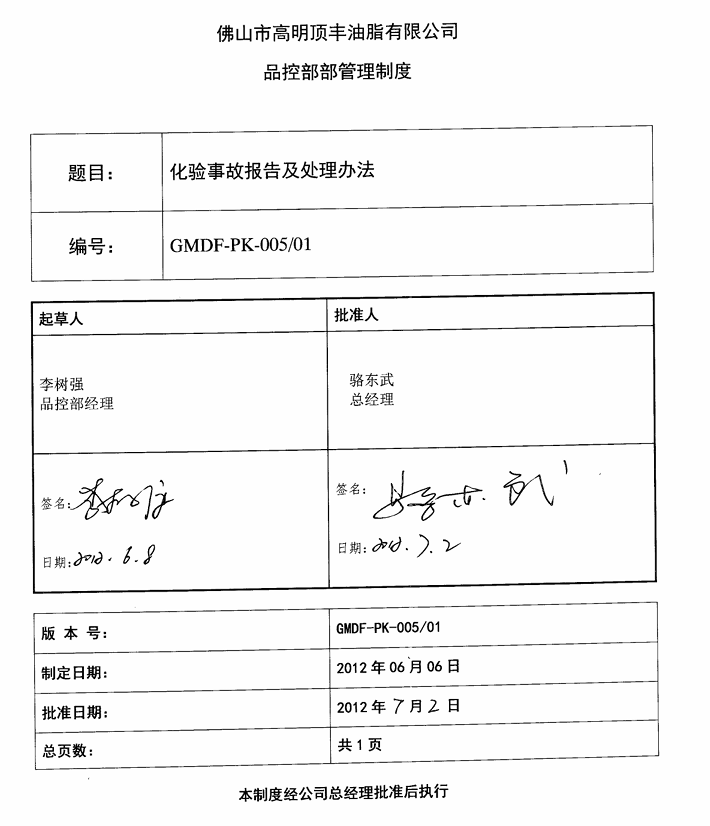 佛山市高明顶丰油脂有限公司
品控部部管理制度
题目： 化验事故报告及处理办法
编号： GMDF-PK-005/01
起草人 批准人
李树强 骆东武
品控部经理 总经理
签名：李树强 签名：骆东武
日期：2012.6.8 日期：2012.7.2
版 本 号： GMDF-PK-005/01
制定日期： 2012 年 06 月 06 日
批准日期： 2012 年 7 月 2 日
总页数： 共 1 页
本制度经公司总经理批准后执行